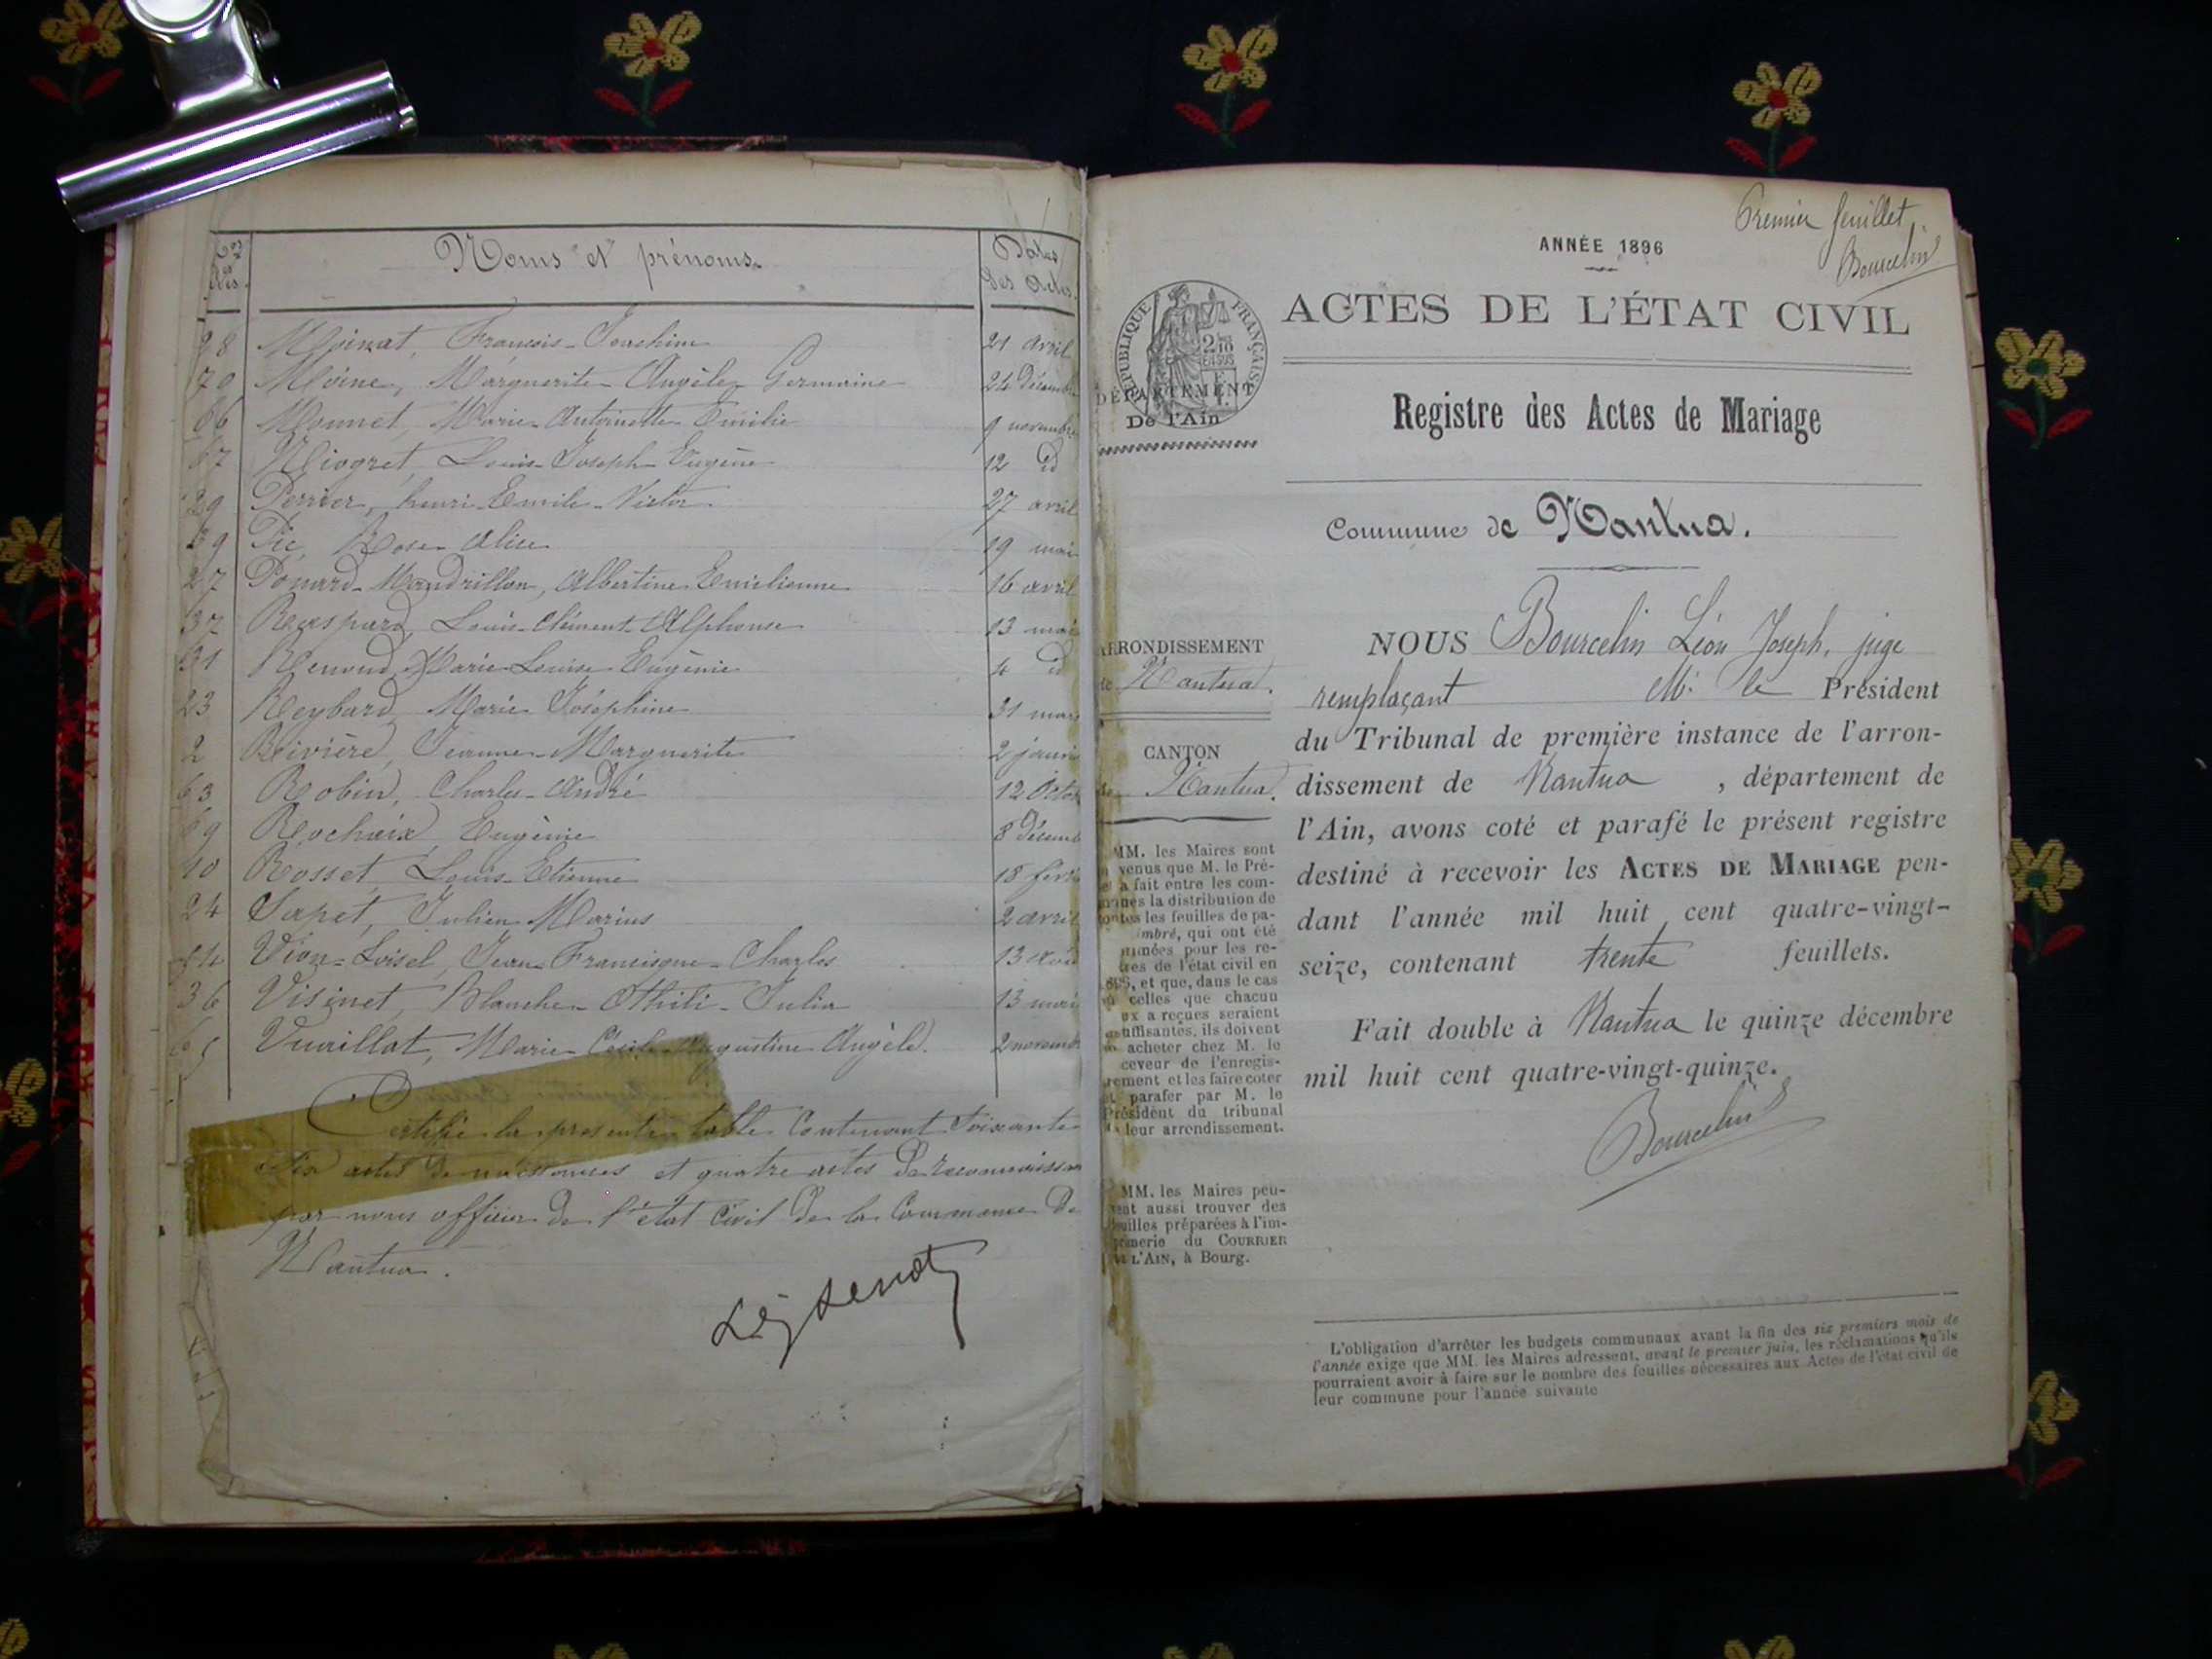 Nos des
Noms et prénoms
Dates des Actes
28 Moinat, François-Joachim 21 avril
70 Moine, Marguerite Angèle Germaine 24 décemb
66 Monnet, Marie Antoinette Emilie 9 novembre
67 Niogret, Louis-Joseph-Eugène 12 id
29 Perrier, henri-Emile-Victor 27 avril
39 Pic, Rose Alice 19 mai
27 Ponard-Mandrillon, Albertine Emilienne 16 avril
37 Raspard, Louis-Clément-Alphonse 13 mai
31 Renoud, Marie-Louise Eugénie 4 id
23 Reybard, Marie Joséphine 31 mars
2 Rivière, Jeanne-Marguerite 2 janvi
63 Robin, Charles-André 12 Octob
69 Rochaix, Eugénie 8 décemb
10 Rosset, Louis-Etienne 18 févri
24 Sapet, Julien Marius 2 avril
54 Vion-Loisel, Jean-Francisque-Charles 13
36 Visinet, Blanche Othili-Julia 13 mai
65 Vuaillat, Marie Cécile Augustine Angèle. 2 novemb
Certifié la présente table Contenant Soixante
dix actes de naissances et quatre actes de reconnaissan
par nous officier de l'état Civil de la Commune de
Nantua.
Premier feuillet.
Bourcelin
ANNÉE 1896
ACTES DE L'ÉTAT CIVIL
RÉPUBLIQUE FRANÇAISE
DÉPARTEMENT
De l'Ain
Registre des Actes de Mariage
Commune de Nantua.
ARRONDISSEMENT
de Nantua.
CANTON
de Nantua.
MM. les Maires sont
venus que M. le Pré-
a fait entre les com-
munes la distribution de
toutes les feuilles de pa-
imbré, qui ont été
primées pour les re-
tres de l'état civil en
1896, et que, dans le cas
où celles que chacun
ux a reçues seraient
insuffisantes, ils doivent
acheter chez M. le
ceveur de l'enregis-
rement et les faire coter
et parafer par M. le
Président du tribunal
de leur arrondissement.
MM. les Maires peu-
vent aussi trouver des
feuilles préparées à l'im-
primerie du COURRIER
DE L'AIN, à Bourg.
NOUS Bourcelin Léon Joseph, juge
remplaçant Mr le Président
du Tribunal de première instance de l'arron-
dissement de Nantua , département de
l'Ain, avons coté et parafé le présent registre
destiné à recevoir les ACTES DE MARIAGE pen-
dant l'année mil huit cent quatre-vingt-
seize, contenant trente feuillets.
Fait double à Nantua le quinze décembre
mil huit cent quatre-vingt-quinze.
Bourcelin
L'obligation d'arrêter les budgets communaux avant la fin des six premiers mois de
l'année exige que MM. les Maires adressent, avant le premier juin, les réclamations qu'ils
pourraient avoir à faire sur le nombre des feuilles nécessaires aux Actes de l'état civil de
leur commune pour l'année suivante